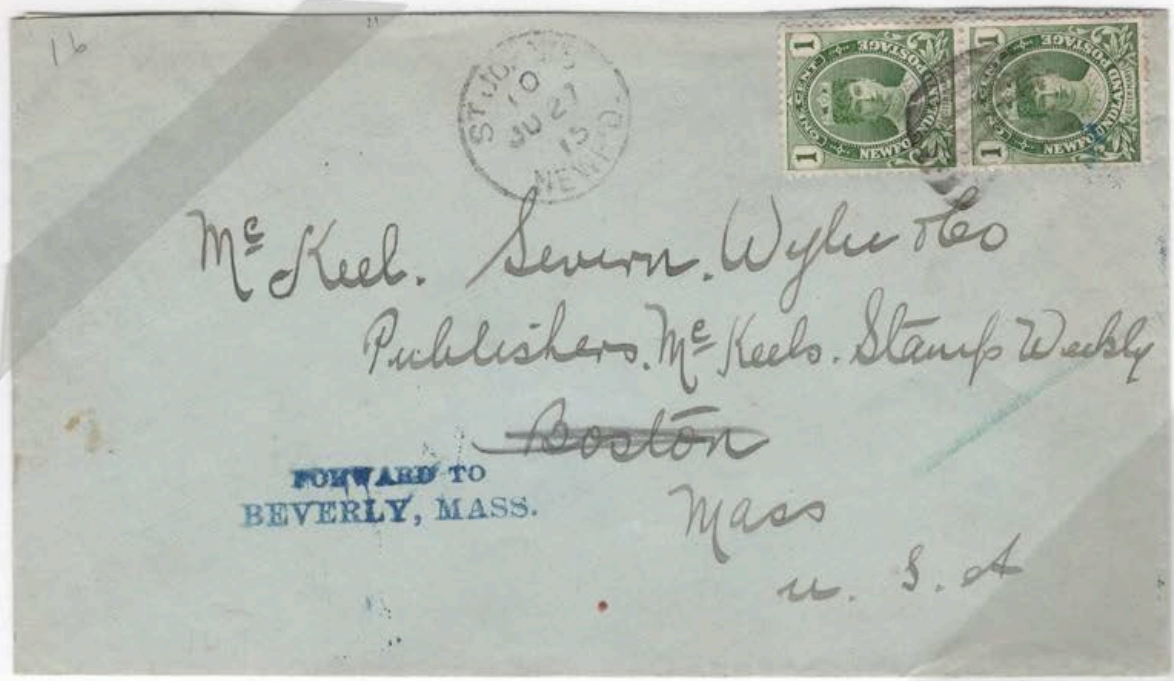 16
ST. JOHN'S
10
JU 27
15
NEWF'D.
1 ONE CENT 1
NEWFOUNDLAND POSTAGE
1 ONE CENT 1
NEWFOUNDLAND POSTAGE
Mc Keel. Severn. Wylie & Co
Publishers. Mc Keels. Stamp Weekly
Boston
FORWARD TO
BEVERLY, MASS.
Mass
U. S. A